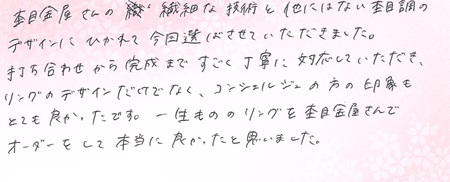 杢目金屋さんの繊細な技術と他にはない杢目調の
デザインにひかれて今回選ばせていただきました。
打ち合わせから完成まですごく丁寧に対応していただき、
リングのデザインだけでなく、コンシェルジュの方の印象も
とても良かったです。一生もののリングを杢目金屋さんで
オーダーをして本当に良かったと思いました。